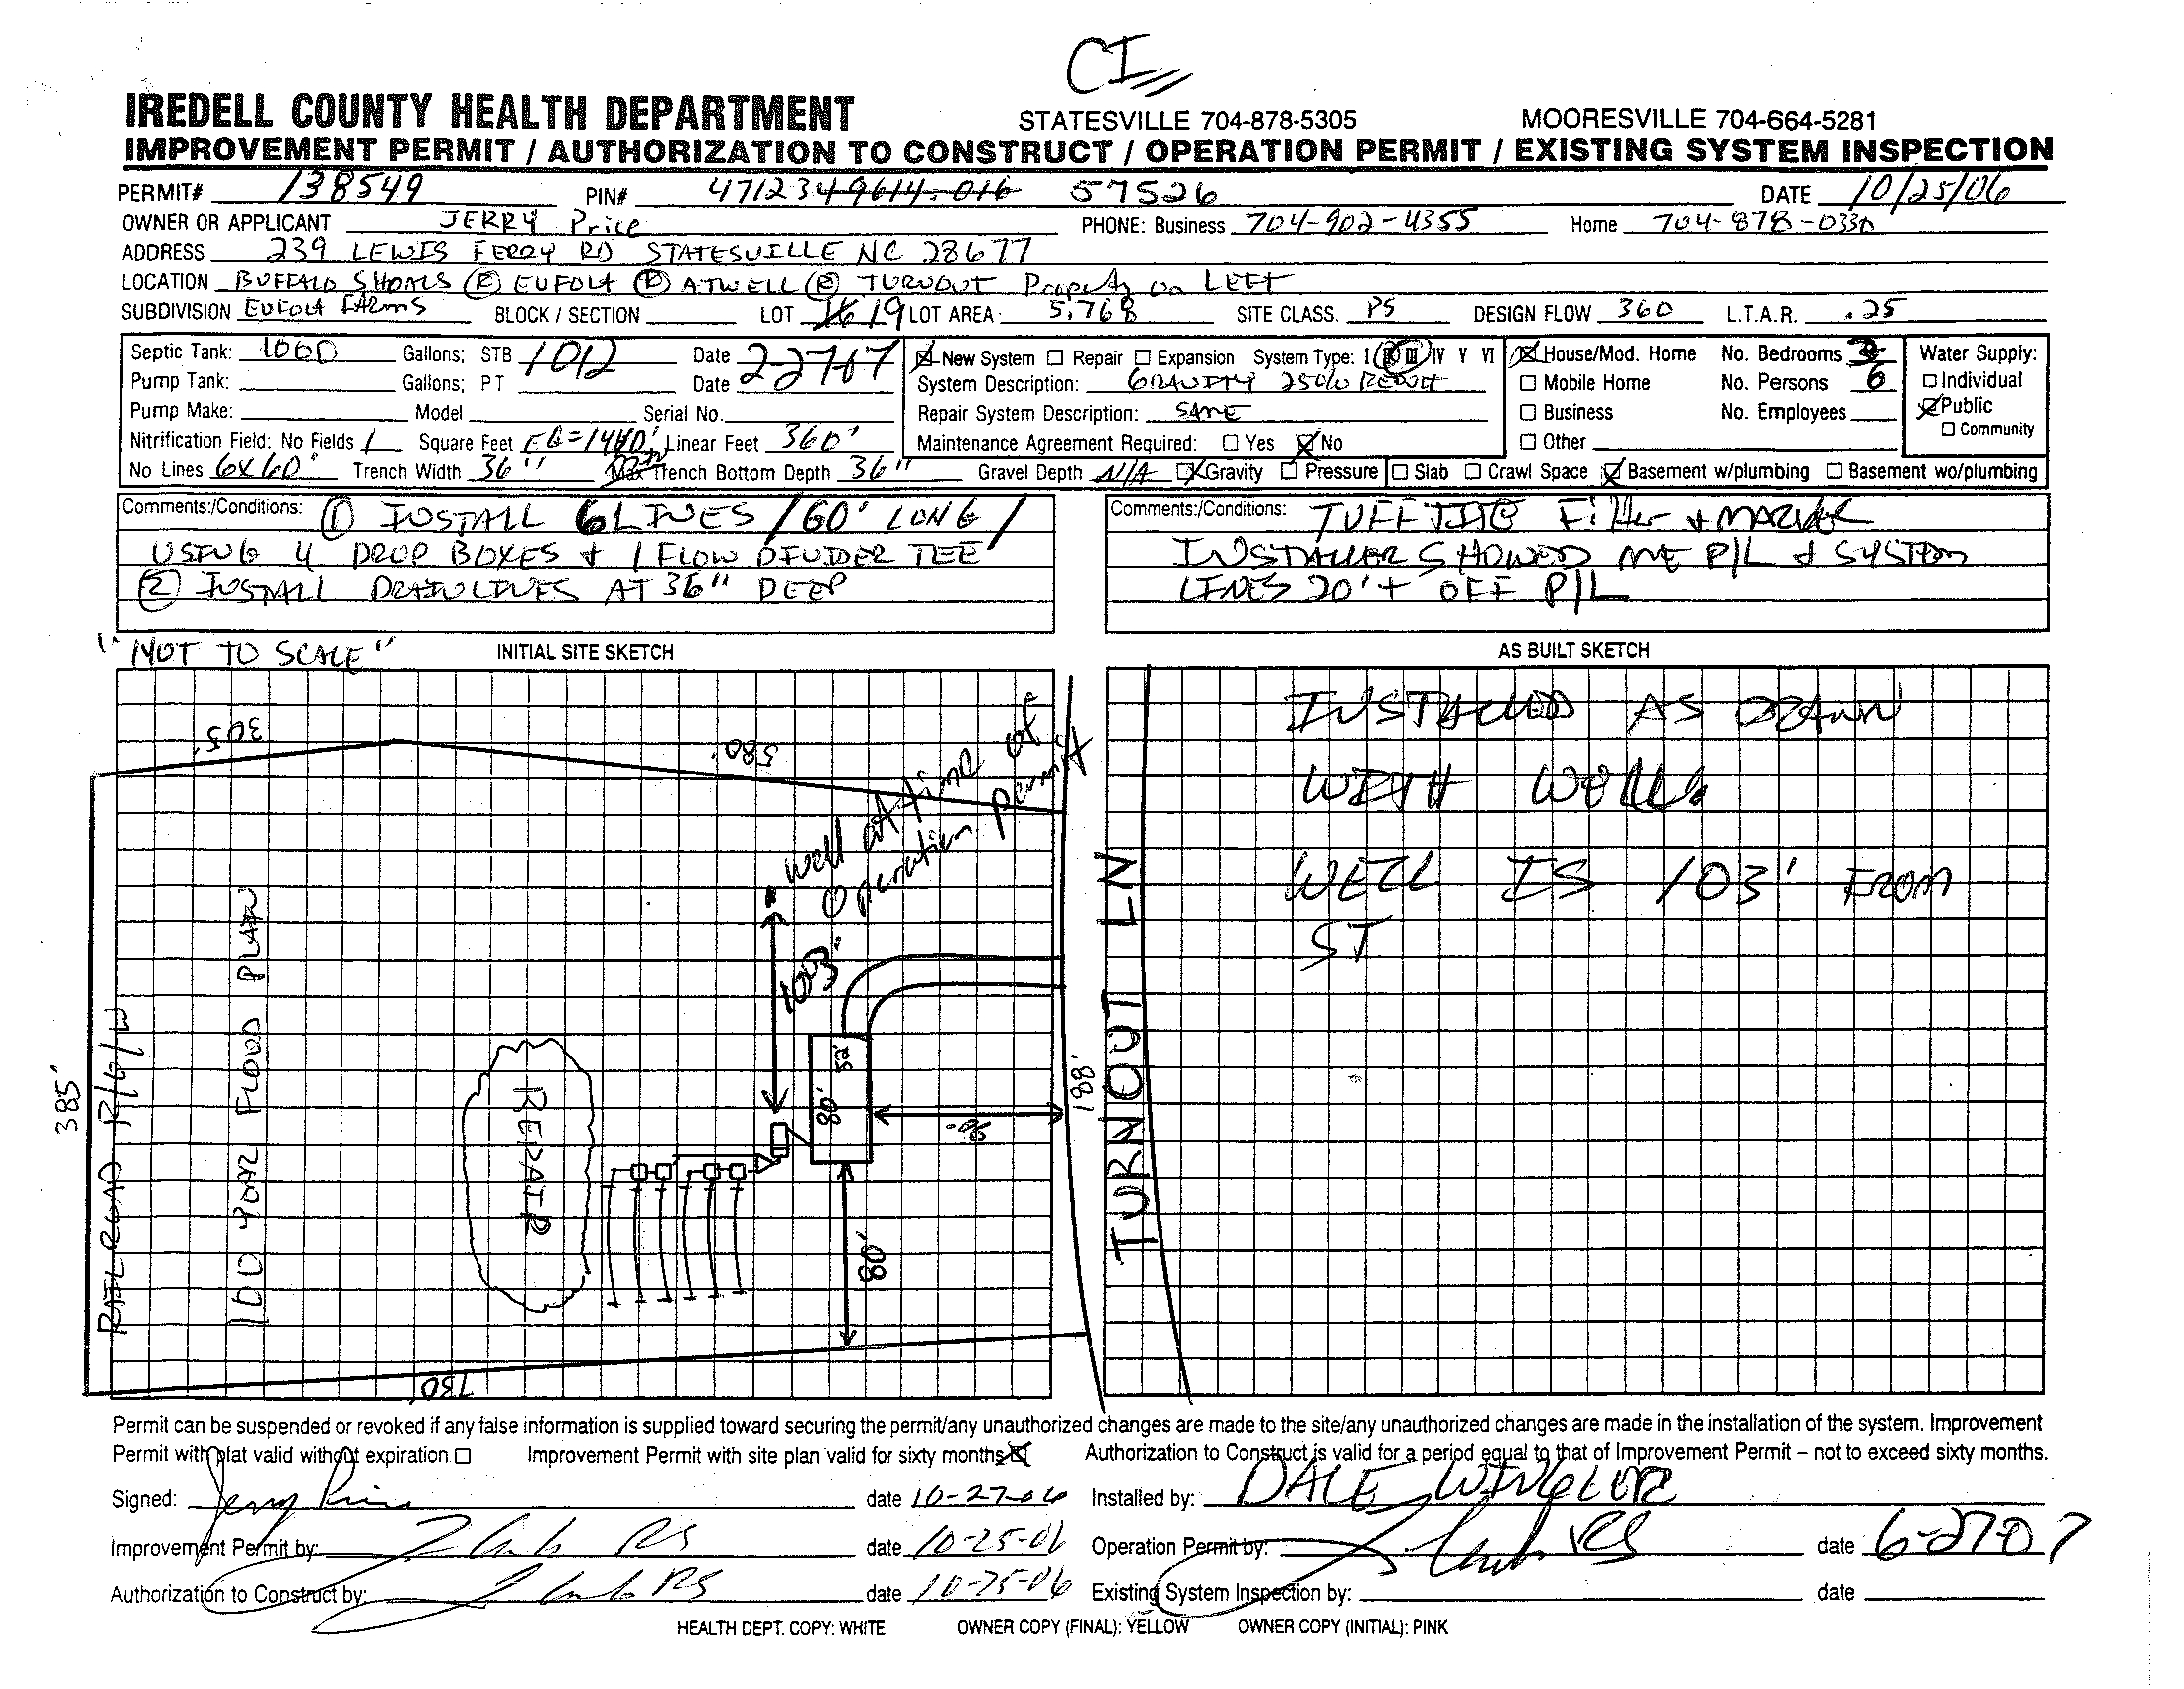 CI
IREDELL COUNTY HEALTH DEPARTMENT STATESVILLE 704-878-5305 MOORESVILLE 704-664-5281
IMPROVEMENT PERMIT / AUTHORIZATION TO CONSTRUCT / OPERATION PERMIT / EXISTING SYSTEM INSPECTION
PERMIT# 138549 PIN# 4712349614.016 57526 DATE 10/25/06
OWNER OR APPLICANT JERRY Price PHONE: Business 704-902-4355 Home 704-878-0330
ADDRESS 239 LEWIS FERRY RD STATESVILLE NC 28677
LOCATION BUFFALO SHOALS (R) EUFOLA (R) ATWELL (R) TURNOUT Property on LEFT
SUBDIVISION EUFOLA FARMS BLOCK / SECTION LOT 16 19 LOT AREA: 5.768 SITE CLASS. PS DESIGN FLOW 360 L.T.A.R. .25
Septic Tank: 1000 Gallons; STB 1012 Date 2-27-07 New System Repair Expansion System Type: I II III IV V VI House/Mod. Home No. Bedrooms 3 Water Supply:
Pump Tank: Gallons; PT Date System Description: GRAVITY 25% REDUCT Mobile Home No. Persons 6 Individual
Pump Make: Model Serial No. Repair System Description: SAME Business No. Employees Public
Nitrification Field: No Fields 1 Square Feet EQ=1440' Linear Feet 360' Maintenance Agreement Required: Yes No Other Community
No Lines 6X60' Trench Width 36" Trench Bottom Depth 36" Gravel Depth N/A Gravity Pressure Slab Crawl Space Basement w/plumbing Basement wo/plumbing
Comments:/Conditions: (1) INSTALL 6 LINES / 60' LONG /
USING 4 DROP BOXES + 1 FLOW DIVIDER TEE
(2) INSTALL DRAINLINES AT 36" DEEP
Comments:/Conditions: TUFF TITE Filter + MARKER
INSTALLER SHOWED ME P/L & SYSTEM
LINES 20'+ OFF P/L
"NOT TO SCALE" INITIAL SITE SKETCH
305'
580'
well at time of
operation permit
103'
100 YEAR FLOOD PLAIN
RAILROAD R/W
385'
REPAIR
80'
52'
96'
188'
80'
730
TURNOUT LN
AS BUILT SKETCH
INSTALLED AS DRAWN
WITH WELL
WELL IS 103' FROM
ST
Permit can be suspended or revoked if any false information is supplied toward securing the permit/any unauthorized changes are made to the site/any unauthorized changes are made in the installation of the system. Improvement
Permit with plat valid without expiration Improvement Permit with site plan valid for sixty months Authorization to Construct is valid for a period equal to that of Improvement Permit – not to exceed sixty months.
Signed: Jerry Price date 10-27-06 Installed by: DALE WINGLER
Improvement Permit by: RS date 10-25-06 Operation Permit by: RS date 6-27-07
Authorization to Construct by: RS date 10-25-06 Existing System Inspection by: date
HEALTH DEPT. COPY: WHITE OWNER COPY (FINAL): YELLOW OWNER COPY (INITIAL): PINK